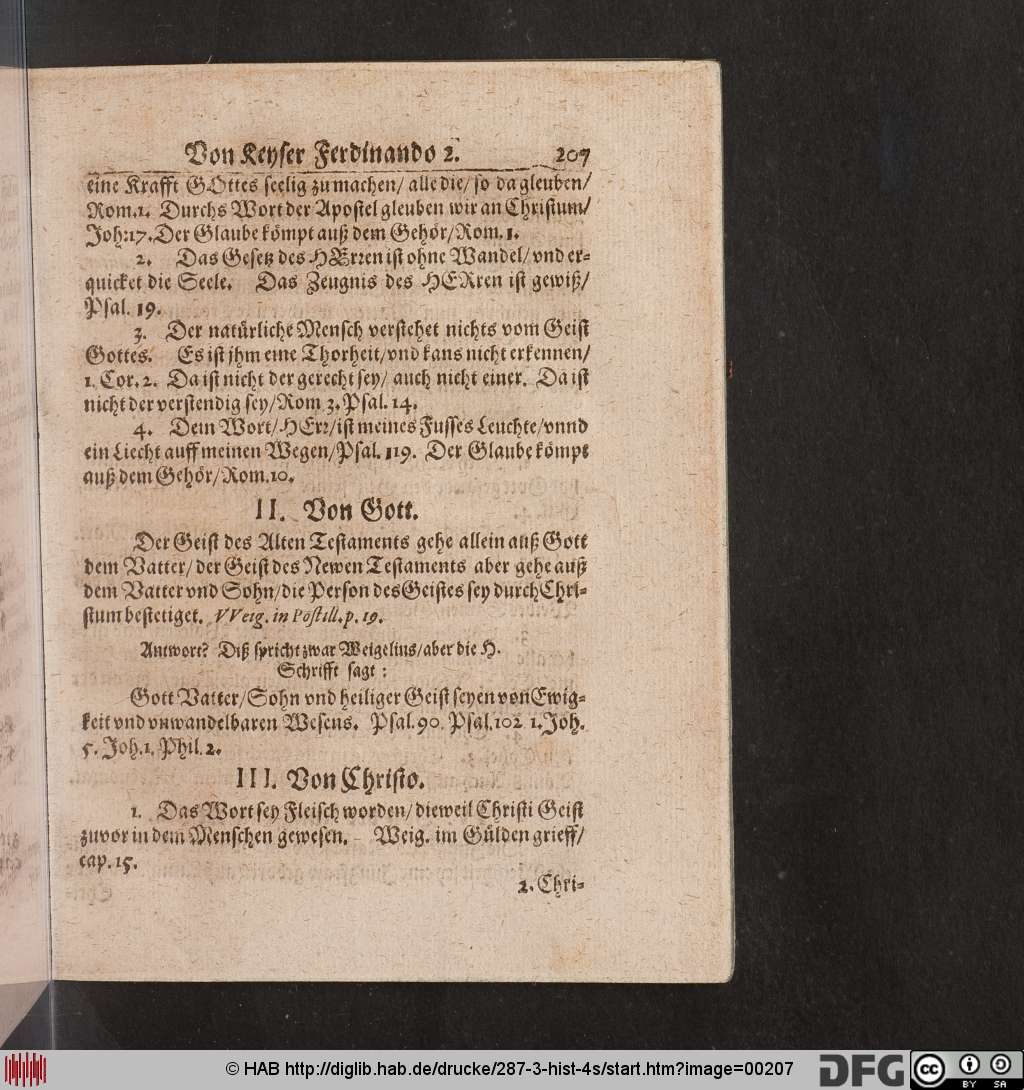 Von Keyser Ferdinando 2. 207
eine Krafft GOttes seelig zu machen/ alle die/ so da gleuben/
Rom.1. Durchs Wort der Apostel gleuben wir an Christum/
Joh:17. Der Glaube kömpt auß dem Gehör/ Rom. 1.
2. Das Gesetz des HErren ist ohne Wandel/ vnd er-
quicket die Seele. Das Zeugnis des HERren ist gewiß/
Psal. 19.
3. Der natürliche Mensch verstehet nichts vom Geist
Gottes. Es ist jhm eine Thorheit/ vnd kans nicht erkennen/
1. Cor. 2. Da ist nicht der gerecht sey/ auch nicht einer. Da ist
nicht der verstendig sey/ Rom 3. Psal. 14.
4. Dein Wort/ HErr/ ist meines Fusses Leuchte/ vnnd
ein Liecht auff meinen Wegen/ Psal. 119. Der Glaube kömpt
auß dem Gehör/ Rom. 10.
II. Von Gott.
Der Geist des Alten Testaments gehe allein auß Gott
dem Vatter/ der Geist des Newen Testaments aber gehe auß
dem Vatter vnd Sohn/ die Person des Geistes sey durch Chri-
stum bestetiget. VVeig. in Postill. p. 19.
Antwort? Diß spricht zwar Weigelius/ aber die H.
Schrifft sagt:
Gott Vatter/ Sohn vnd heiliger Geist seyen von Ewig-
keit vnd vnwandelbaren Wesens. Psal. 90. Psal. 102 1. Joh.
5. Joh. 1. Phil. 2.
III. Von Christo.
1. Das Wort sey Fleisch worden/ dieweil Christi Geist
zuvor in dem Menschen gewesen. Weig. im Gülden grieff/
cap. 15.
2. Chri-
© HAB http://diglib.hab.de/drucke/287-3-hist-4s/start.htm?image=00207
DFG
cc BY SA